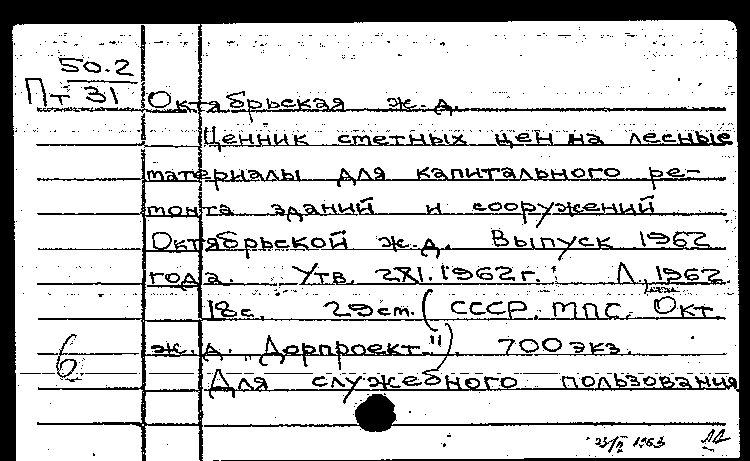 50.2
Пт 31
Октябрьская ж.д.
Ценник сметных цен на лесные
материалы для капитального ре-
монта зданий и сооружений
Октябрьской ж.д. Выпуск 1962
года. Утв. 2XI.1962г. Л., 1962
18с. 29см. (СССР. МПС. Окт.
ж.д. „Дорпроект."). 700экз.
6
Для служебного пользования
1963